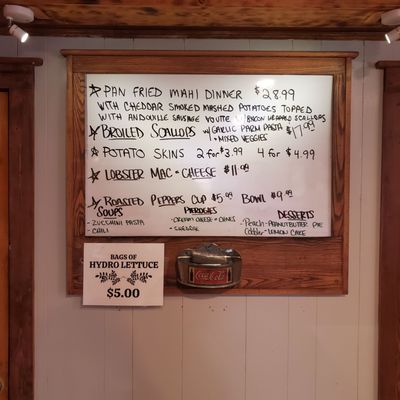 ☆ PAN FRIED MAHI DINNER $28.99
WITH CHEDDAR SMOKED MASHED POTATOES TOPPED
WITH ANDOUILLE SAUSAGE W/ BACON WRAPPED SCALLOPS
☆ BROILED SCALLOPS W/ GARLIC PARM PASTA $17.99
+ MIXED VEGGIES
☆ POTATO SKINS 2 for $3.99 4 for $4.99
☆ LOBSTER MAC + CHEESE $11.99
☆ ROASTED PEPPERS CUP $5.99 BOWL $9.99
SOUPS PIEROGIES DESSERTS
- ZUCCHINI PASTA - CREAM CHEESE + CHIVES Peach - PEANUTBUTTER PIE
- CHILI - CHEDDAR Cobbler - LEMON CAKE
BAGS OF
HYDRO LETTUCE
$5.00
Coca-Cola